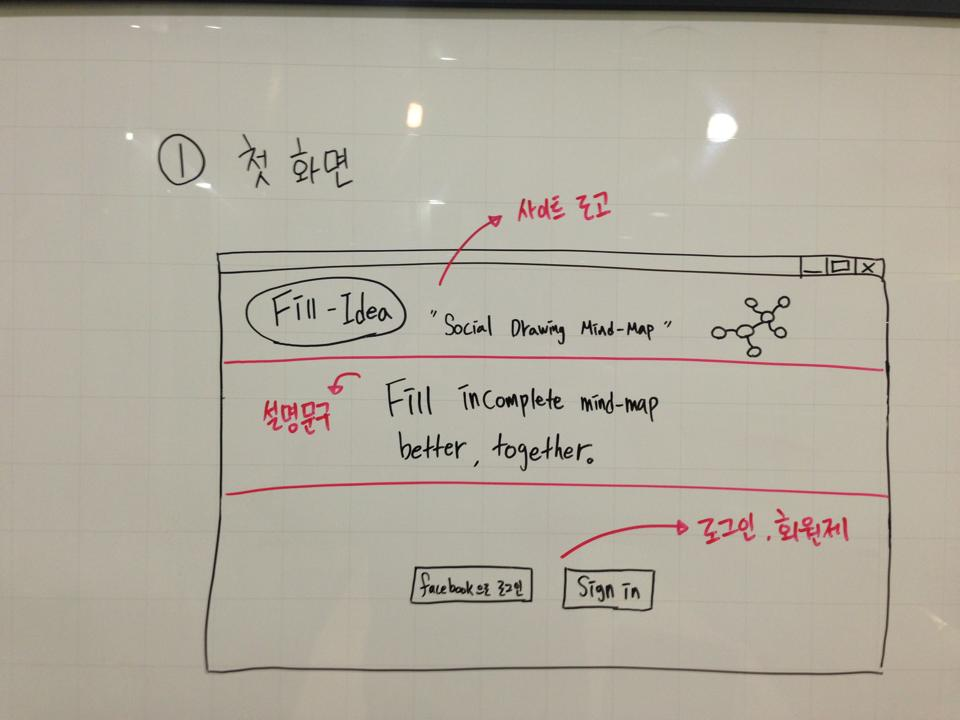 ① 첫 화면
사이트 로고
Fill-Idea
"Social Drawing Mind-Map"
설명문구
Fill incomplete mind-map
better, together.
로그인, 회원제
facebook으로 로그인
Sign in